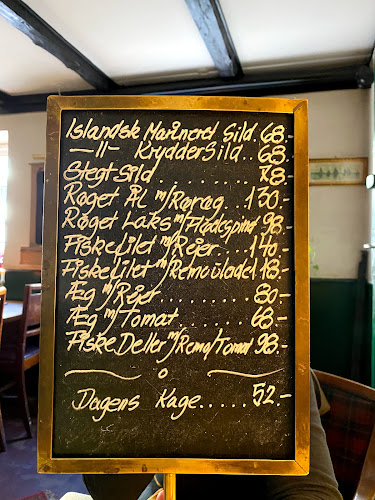 Islandsk Marineret Sild 68.-
-11- KrydderSild.. 68.-
Stegt Sild ......... 78.-
Røget Ål m/Røræg.. 130.-
Røget Laks m/Flødespinat 98.-
Fiskefilet m/Rejer... 140.-
Fiskefilet m/Remoulade 118.-
Æg m/Rejer......... 80.-
Æg m/Tomat ...... 68.-
FiskeDeller m/Remo/Tomat 98.-
o
Dagens Kage..... 52.-